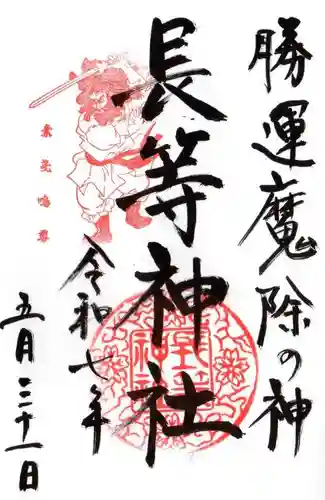 勝運魔除の神
長等神社
令和七年
五月三十一日
素戔嗚尊